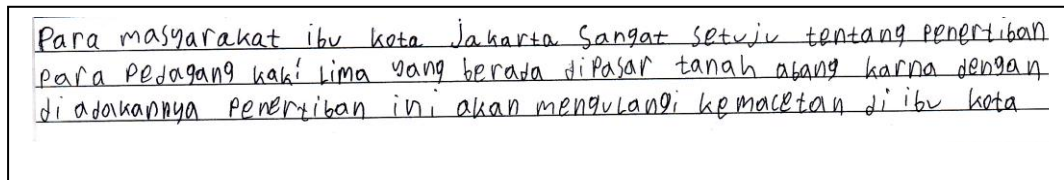 Para masyarakat ibu kota Jakarta Sangat setuju tentang Penertiban
para Pedagang kaki Lima yang berada diPasar tanah abang karna dengan
di adakannya Penertiban ini akan mengurangi kemacetan di ibu kota